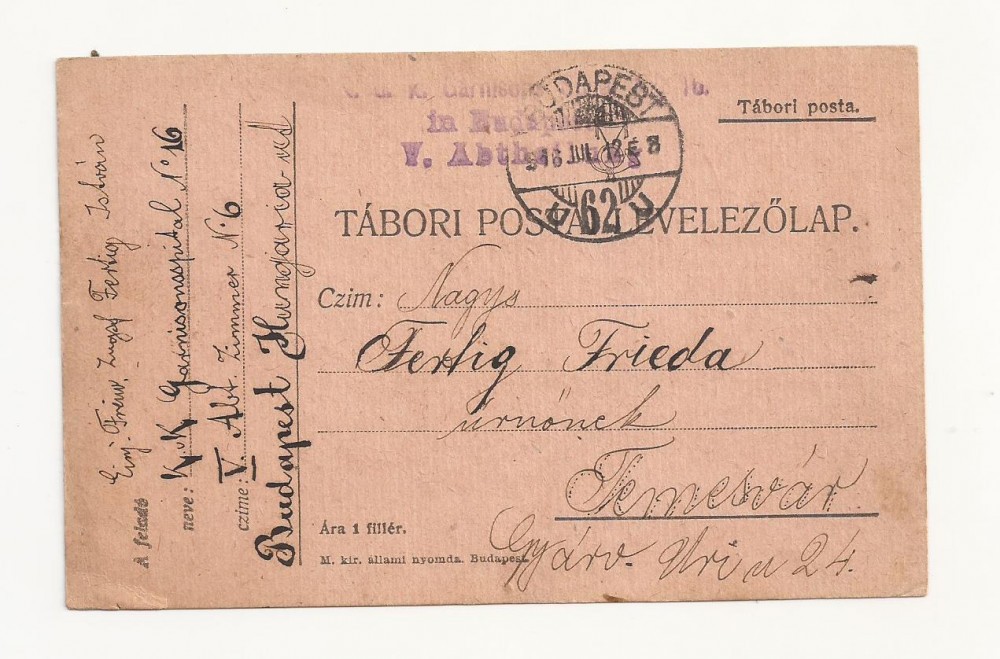 K. u. K. Garnisons 16.
in Budapest
V. Abtheilung
BUDAPEST
916 JUL. 8
62
Tábori posta.
TÁBORI POSTAI LEVELEZŐLAP.
Czim: Nagys
Fertig Frieda
úrnőnek
Temesvár.
Gyárv. Uri u 24.
Ára 1 fillér.
M. kir. állami nyomda. Budapest.
A feladó
Einj. Freiw. Zugsf Fertig István
neve: K.u.K. Garnisonsspital No 16
czime: V. Abt. Zimmer No 6
Budapest Hungaria